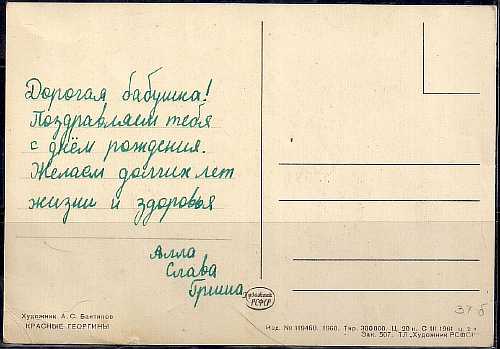 Дорогая бабушка!
Поздравляем тебя
с днём рождения.
Желаем долгих лет
жизни и здоровья
Алла
Слава
Гриша
Художник А. С. Бактинов
КРАСНЫЕ ГЕОРГИНЫ
Художник
РСФСР
Изд. № 119460. 1960. Тир. 300000. Ц. 20 к. С III 1961 ц. 2 к
Зак. 507. ТЛ „Художник РСФСР"
37 б